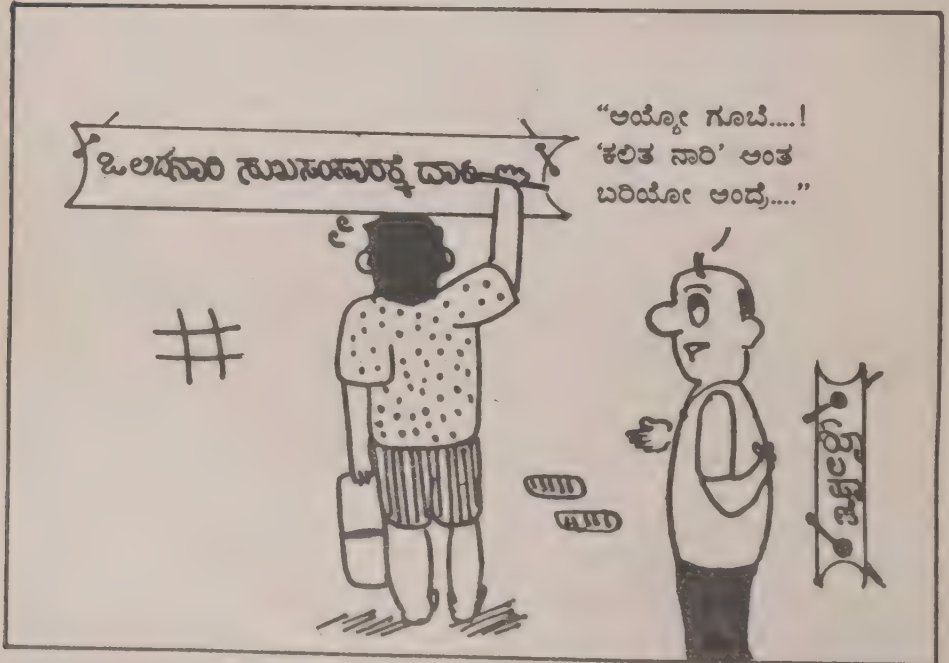 ಒಲಿದನಾರಿ ಸುಖಸಂಸಾರಕ್ಕೆ ದಾರಿ
“ಅಯ್ಯೋ ಗೂಬೆ....!
‘ಕಲಿತ ನಾರಿ’ ಅಂತ
ಬರಿಯೋ ಅಂದ್ರೆ....”